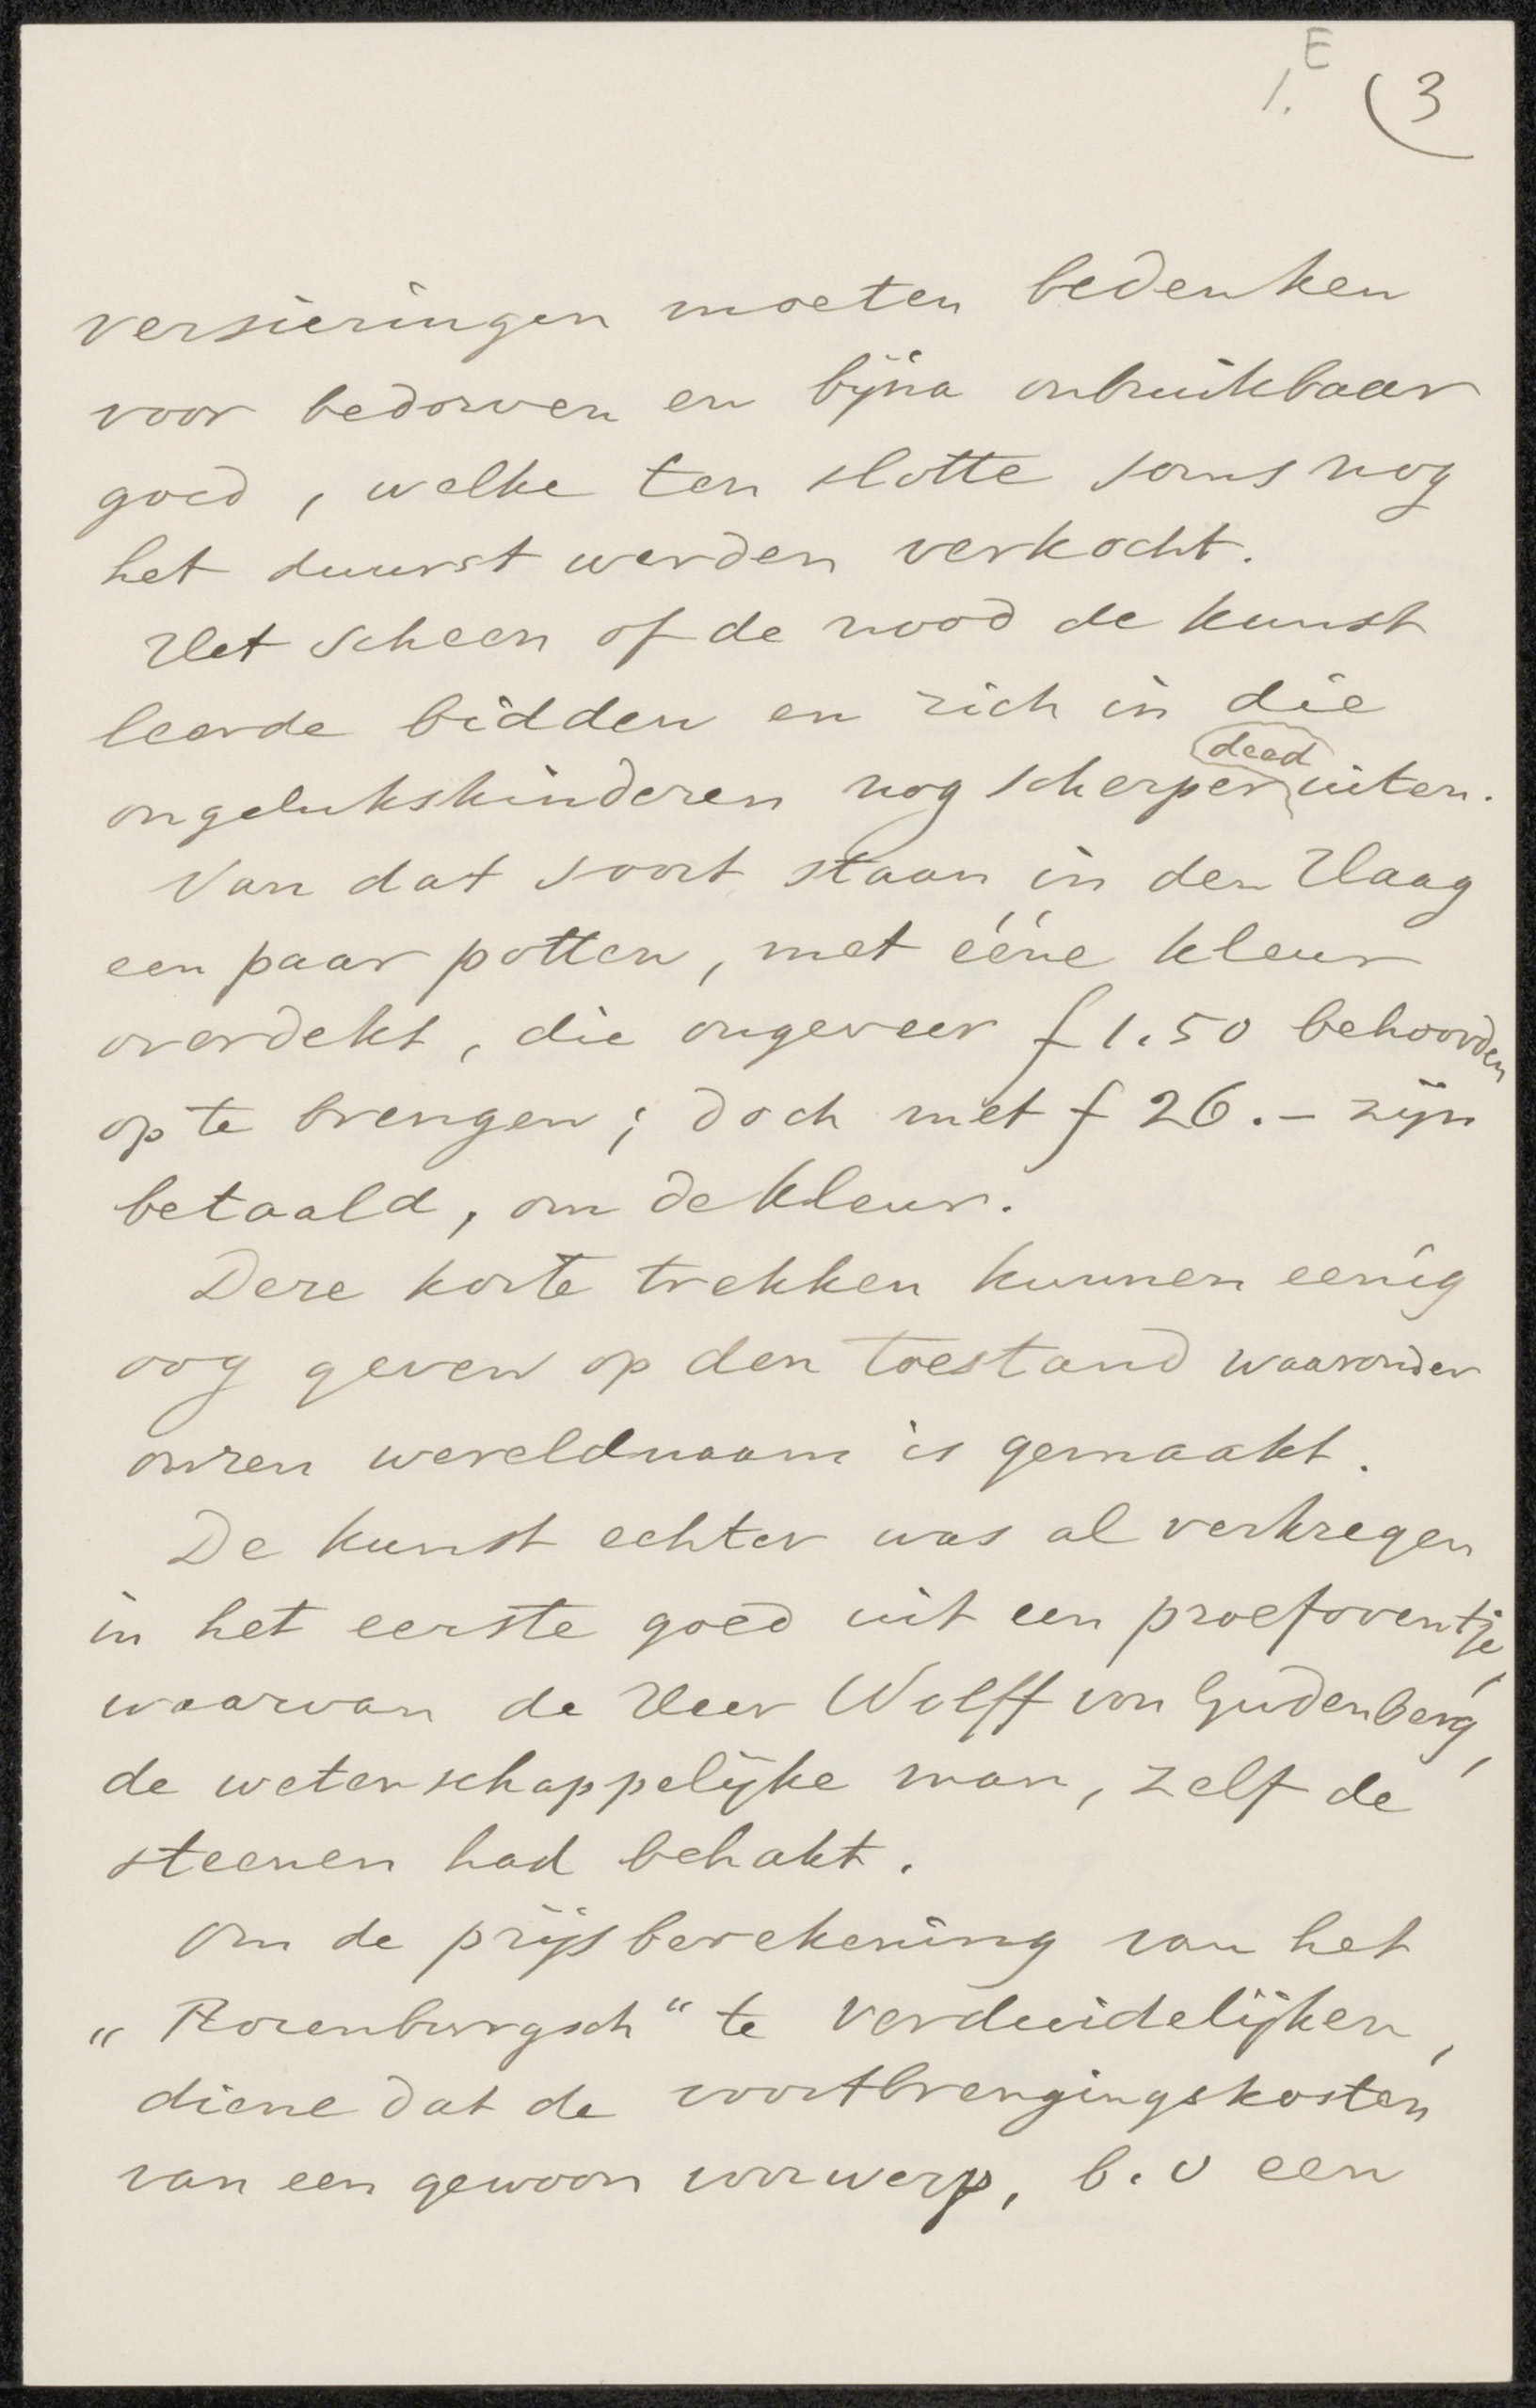 1.E (3
versieringen moeten bedenken
voor bedorven en bijna onbruikbaar
goed, welke ten slotte soms nog
het duurst werden verkocht.
Het scheen of de nood de kunst
leerde bidden en zich in die
deed
ongelukskinderen nog scherper uiten.
Van dat soort staan in den Haag
een paar potten, met ééne kleur
overdekt, die ongeveer f 1.50 behoorden
op te brengen; doch met f 26.- zijn
betaald, om de kleur.
Deze korte trekken kunnen eenig
oog geven op den toestand waaronder
onzen wereldnaam is gemaakt.
De kunst echter was al verkregen
in het eerste goed uit een proefoventje,
waarvan de Heer Wolff von Gudenberg,
de wetenschappelijke man, zelf de
steenen had behakt.
Om de prijsberekening van het
„Rozenburgsch“ te verduidelijken,
diene dat de voortbrengingskosten
van een gewoon voorwerp, b.v een